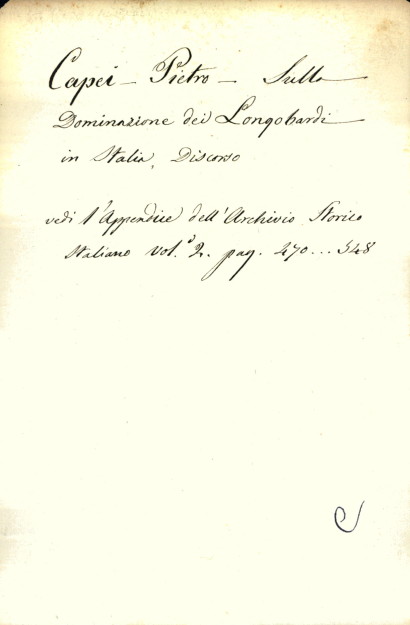 Capei - Pietro - Sulla
Dominazione dei Longobardi
in Italia, Discorso
vedi l'Appendice dell'Archivio Storico
Italiano vol.º 2. pag. 470...548